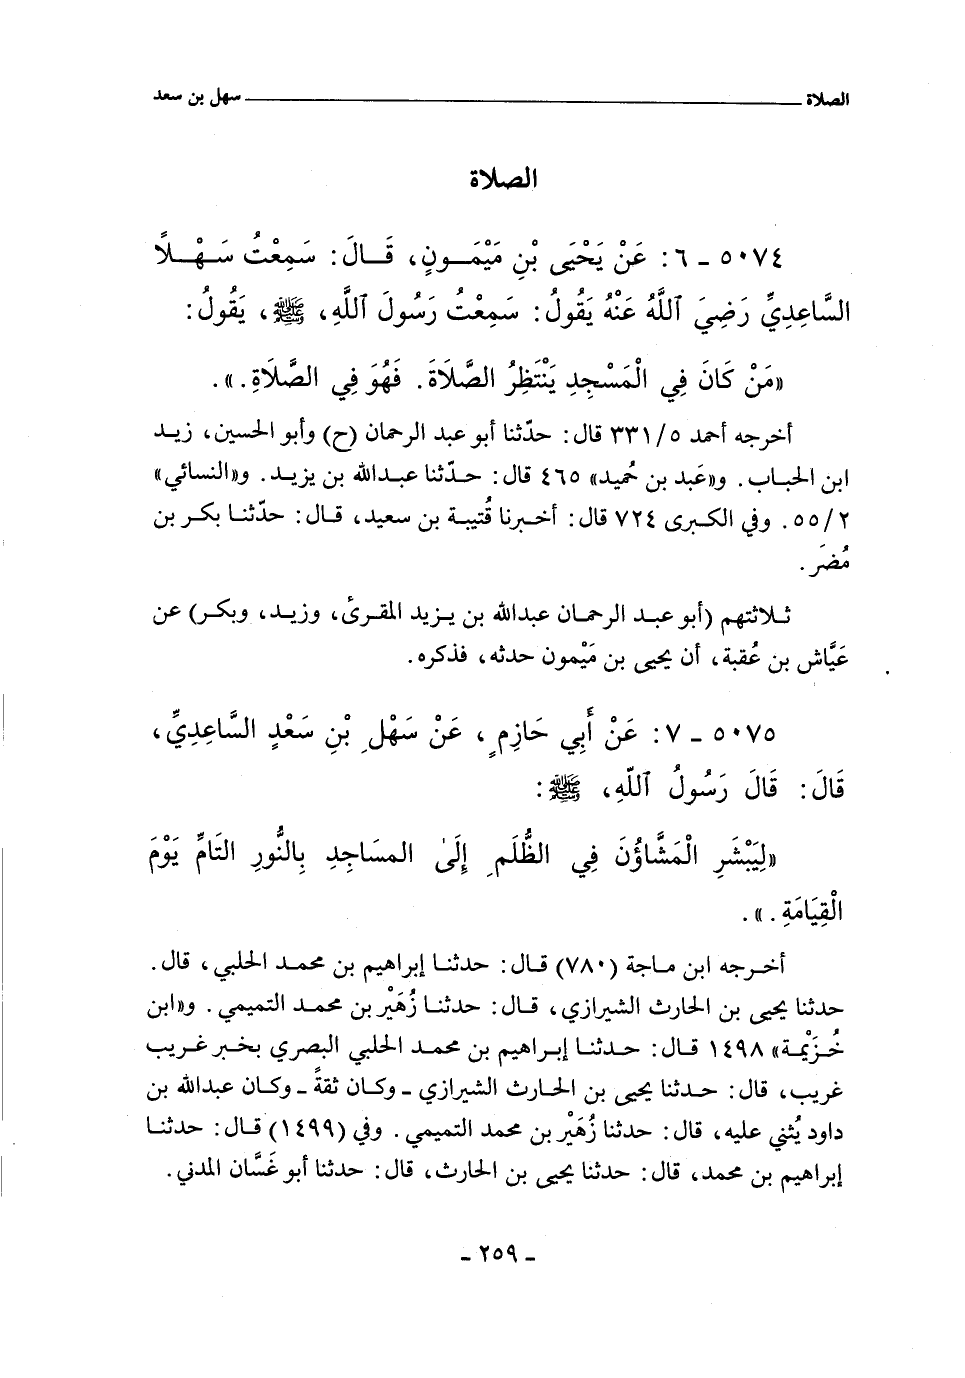 الصلاة ــــــــــــــــــــ سهل بن سعد
الصلاة
٥٠٧٤ ـ ٦: عَنْ يَحْيَى بْنِ مَيْمُـونٍ، قَـالَ: سَمِعْتُ سَهْـلاً
السَّاعِدِيِّ رَضِيَ ٱللَّهُ عَنْهُ يَقُولُ: سَمِعْتُ رَسُولَ ٱللَّهِ، ﷺ، يَقُولُ:
«مَنْ كَانَ فِي الْمَسْجِدِ يَنْتَظِرُ الصَّلَاةَ. فَهُوَ فِي الصَّلَاةِ.».
أخرجه أحمد ٣٣١/٥ قال: حدّثنا أبو عبد الرحمان (ح) وأبو الحسين، زيد
ابن الحباب. و«عَبد بن حُميد» ٤٦٥ قال: حدّثنا عبدالله بن يزيد. و«النسائي»
٥٥/٢. وفي الكبرى ٧٢٤ قال: أخبرنا قُتيبة بن سعيد، قال: حدّثنا بكر بن
مُضَر.
ثلاثتهم (أبو عبد الرحمان عبدالله بن يزيد المقرئ، وزيد، وبكر) عن
عَيَّاش بن عُقبة، أن يحيى بن مَيْمون حدثه، فذكره.
٥٠٧٥ ـ ٧: عَنْ أَبِي حَازِمٍ، عَنْ سَهْلِ بْنِ سَعْدٍ السَّاعِدِيِّ،
قَالَ: قَالَ رَسُولُ ٱللّهِ، ﷺ:
«لِيَبْشَرِ الْمَشَّاؤُنَ فِي الظُّلَمِ إِلَىٰ المسَاجِدِ بِالنُّورِ التَامِّ يَوْمَ
الْقِيَامَةِ.».
أخرجه ابن ماجة (٧٨٠) قال: حدثنا إبراهيم بن محمد الحلبي، قال.
حدثنا يحيى بن الحارث الشيرازي، قال: حدثنا زُهَيْر بن محمد التميمي. و«ابن
خُزَيْمة» ١٤٩٨ قال: حدثنا إبراهيم بن محمد الحلبي البصري بخبر غريب
غريب، قال: حدثنا يحيى بن الحارث الشيرازي ـ وكان ثقةً ـ وكان عبدالله بن
داود يُثني عليه، قال: حدثنا زُهَيْر بن محمد التميمي. وفي (١٤٩٩) قال: حدثنا
إبراهيم بن محمد، قال: حدثنا يحيى بن الحارث، قال: حدثنا أبو غَسَّان المدني.
ـ ٢٥٩ ـ